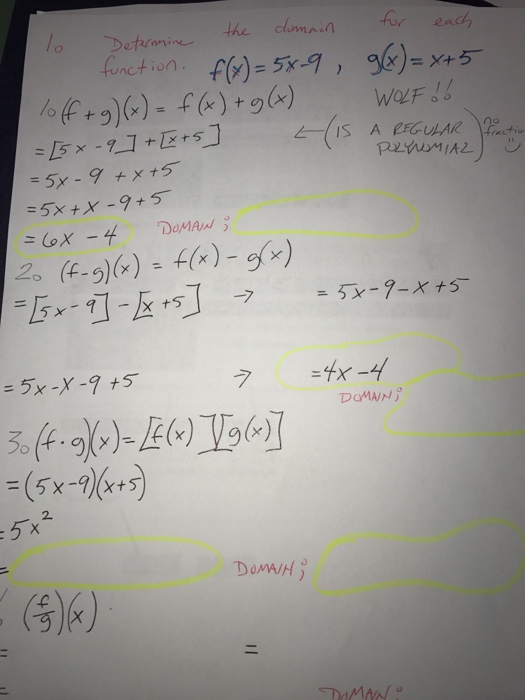 1. Determine the domain for each
function. f(x) = 5x-9, g(x) = x+5
1. (f+g)(x) = f(x) + g(x) WOLF!!
= [5x-9] + [x+5] ← (IS A REGULAR POLYNOMIAL) no fraction
= 5x - 9 + x + 5
= 5x + x - 9 + 5
= 6x - 4 DOMAIN;
2. (f-g)(x) = f(x) - g(x)
= [5x-9] - [x+5] → = 5x-9-x+5
= 5x-x-9+5 → = 4x-4
DOMAIN;
3. (f·g)(x) = [f(x)][g(x)]
= (5x-9)(x+5)
= 5x²
= DOMAIN;
(f/g)(x)
= =
= DOMAIN: